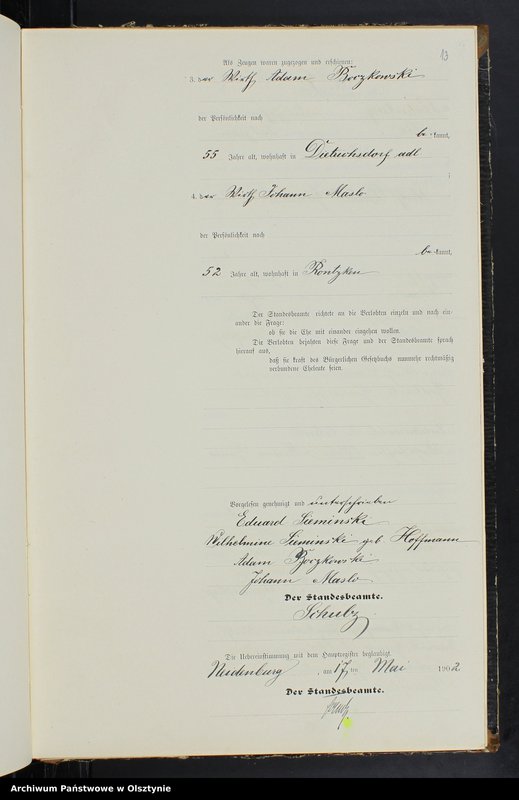 13
Als Zeugen waren zugezogen und erschienen:
3. der Wirth Adam Borzkowski
der Persönlichkeit nach
be kannt,
55 Jahre alt, wohnhaft in Dietrichsdorf adl
;
4. der Wirth Johann Maslo
der Persönlichkeit nach
be kannt,
52 Jahre alt, wohnhaft in Rontzken
Der Standesbeamte richtete an die Verlobten einzeln und nach ein-
ander die Frage:
ob sie die Ehe mit einander eingehen wollen.
Die Verlobten bejahten diese Frage und der Standesbeamte sprach
hierauf aus,
daß sie kraft des Bürgerlichen Gesetzbuchs nunmehr rechtmäßig
verbundene Eheleute seien.
Vorgelesen, genehmigt und unterschrieben
Eduard Sieminski
Wilhelmine Sieminski geb Hoffmann
Adam Borzkowski
Johann Maslo
Der Standesbeamte.
Schulz
Die Uebereinstimmung mit dem Hauptregister beglaubigt
Neidenburg, am 17 ten Mai 1902
Der Standesbeamte.
Archiwum Państwowe w Olsztynie